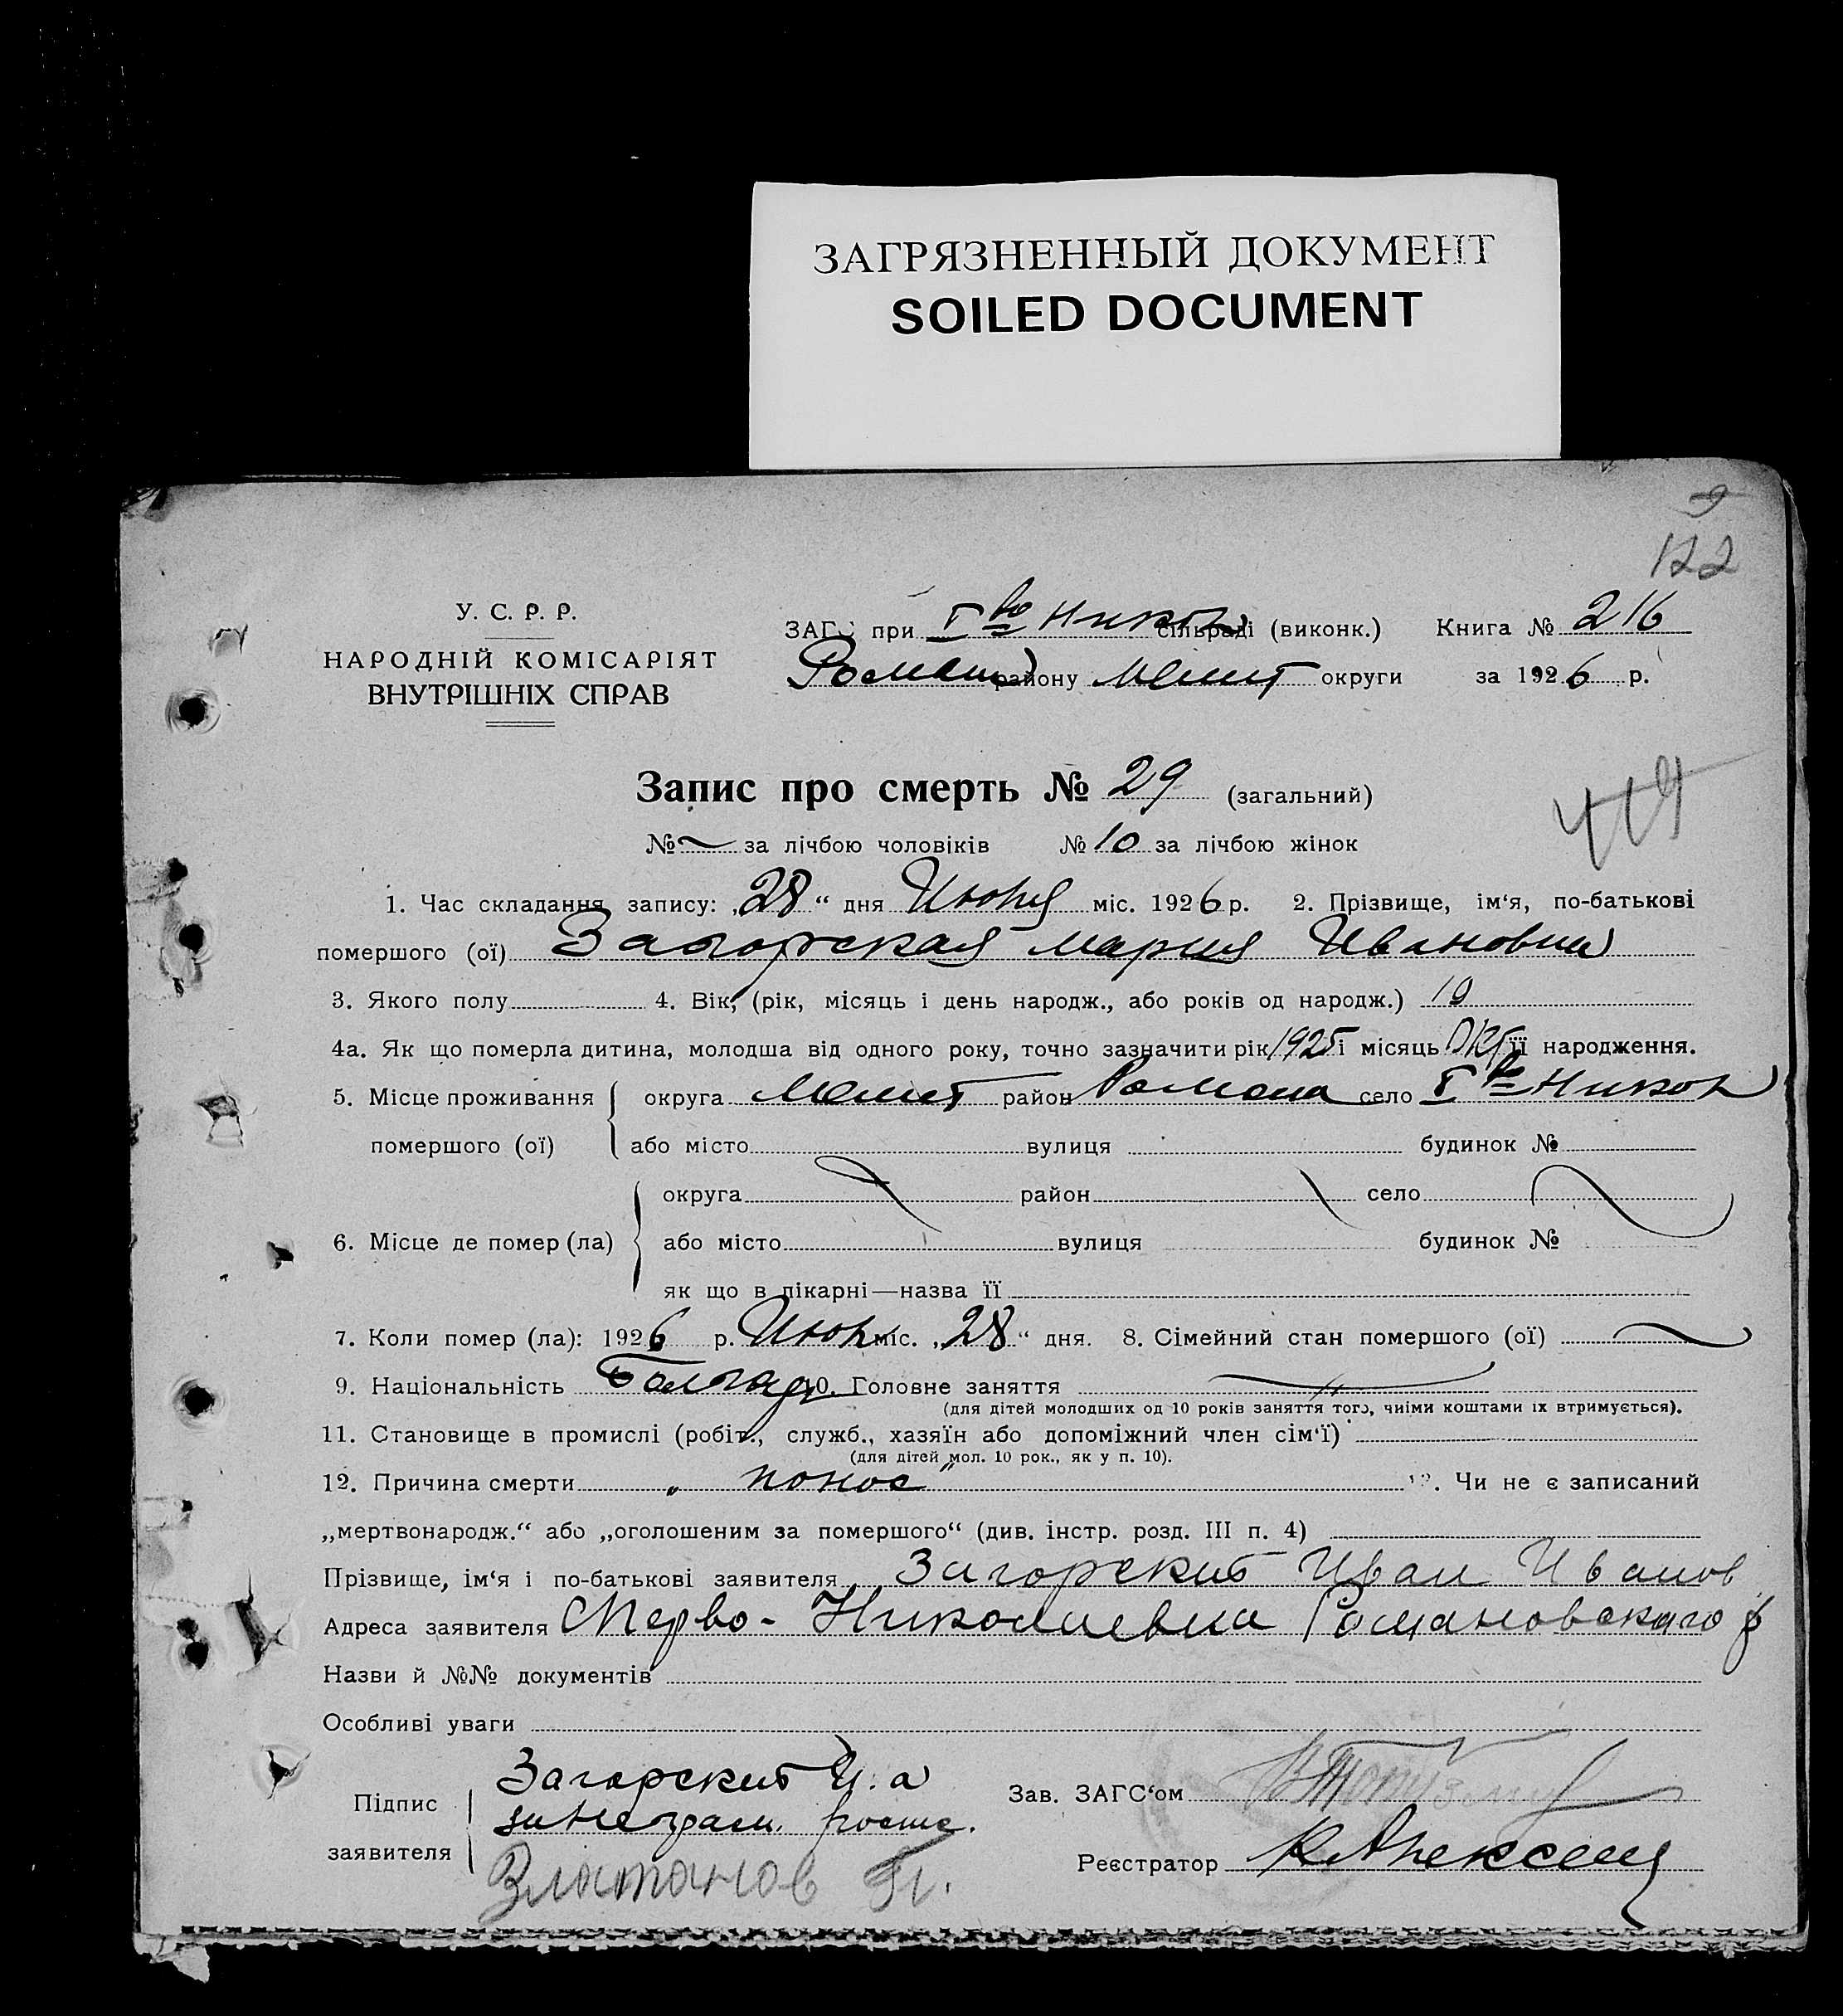 ЗАГРЯЗНЕННЫЙ ДОКУМЕНТ
SOILED DOCUMENT
122
У. С. Р. Р.
НАРОДНІЙ КОМІСАРІЯТ
ВНУТРІШНІХ СПРАВ
ЗАГС при І во Никол сільраді (виконк.) Книга № 216
Роман району Мелит округи за 1926 р.
Запис про смерть № 29 (загальний)
419
№ за лічбою чоловіків № 10 за лічбою жінок
1. Час складання запису: „28“ дня Июня міс. 1926 р. 2. Прізвище, ім‘я, по-батькові
помершого (ої) Загорская Мария Ивановна
3. Якого полу 4. Вік, (рік, місяць і день народж., або років од народж.)
4а. Як що померла дитина, молодша від одного року, точно зазначити рік 1925 і місяць Окт її народження.
5. Місце проживання округа Мелит район Романа село І во Никол
помершого (ої) або місто вулиця будинок №
округа район село
6. Місце де помер (ла) або місто вулиця будинок №
як що в лікарні—назва її
7. Коли помер (ла): 1926 р. Июн міс. „28“ дня. 8. Сімейний стан помершого (ої)
9. Національність Болгар 10. Головне заняття
(для дітей молодших од 10 років заняття того, чиїми коштами їх втримується).
11. Становище в промислі (робіт., служб., хазяїн або допоміжний член сім‘ї)
(для дітей мол. 10 рок., як у п. 10).
12. Причина смерти „понос“ 13. Чи не є записаний
„мертвонародж.“ або „оголошеним за помершого“ (див. інстр. розд. III п. 4)
Прізвище, ім‘я і по-батькові заявителя Загорский Иван Иванов
Адреса заявителя Перво-Николаевка Романовского р
Назви й №№ документів
Особливі уваги
Підпис заявителя Загорский И. а
за неграм. росп.
Златанов
Зав. ЗАГС‘ом
Реєстратор К Алексеец